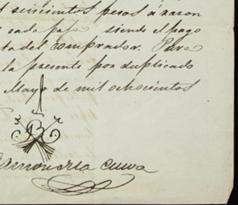 seiscientos pesos á razon
cada peso siendo el pago
ta del comprador. Para
la presente por duplicado
Mayo de mil ochocientos
cueva